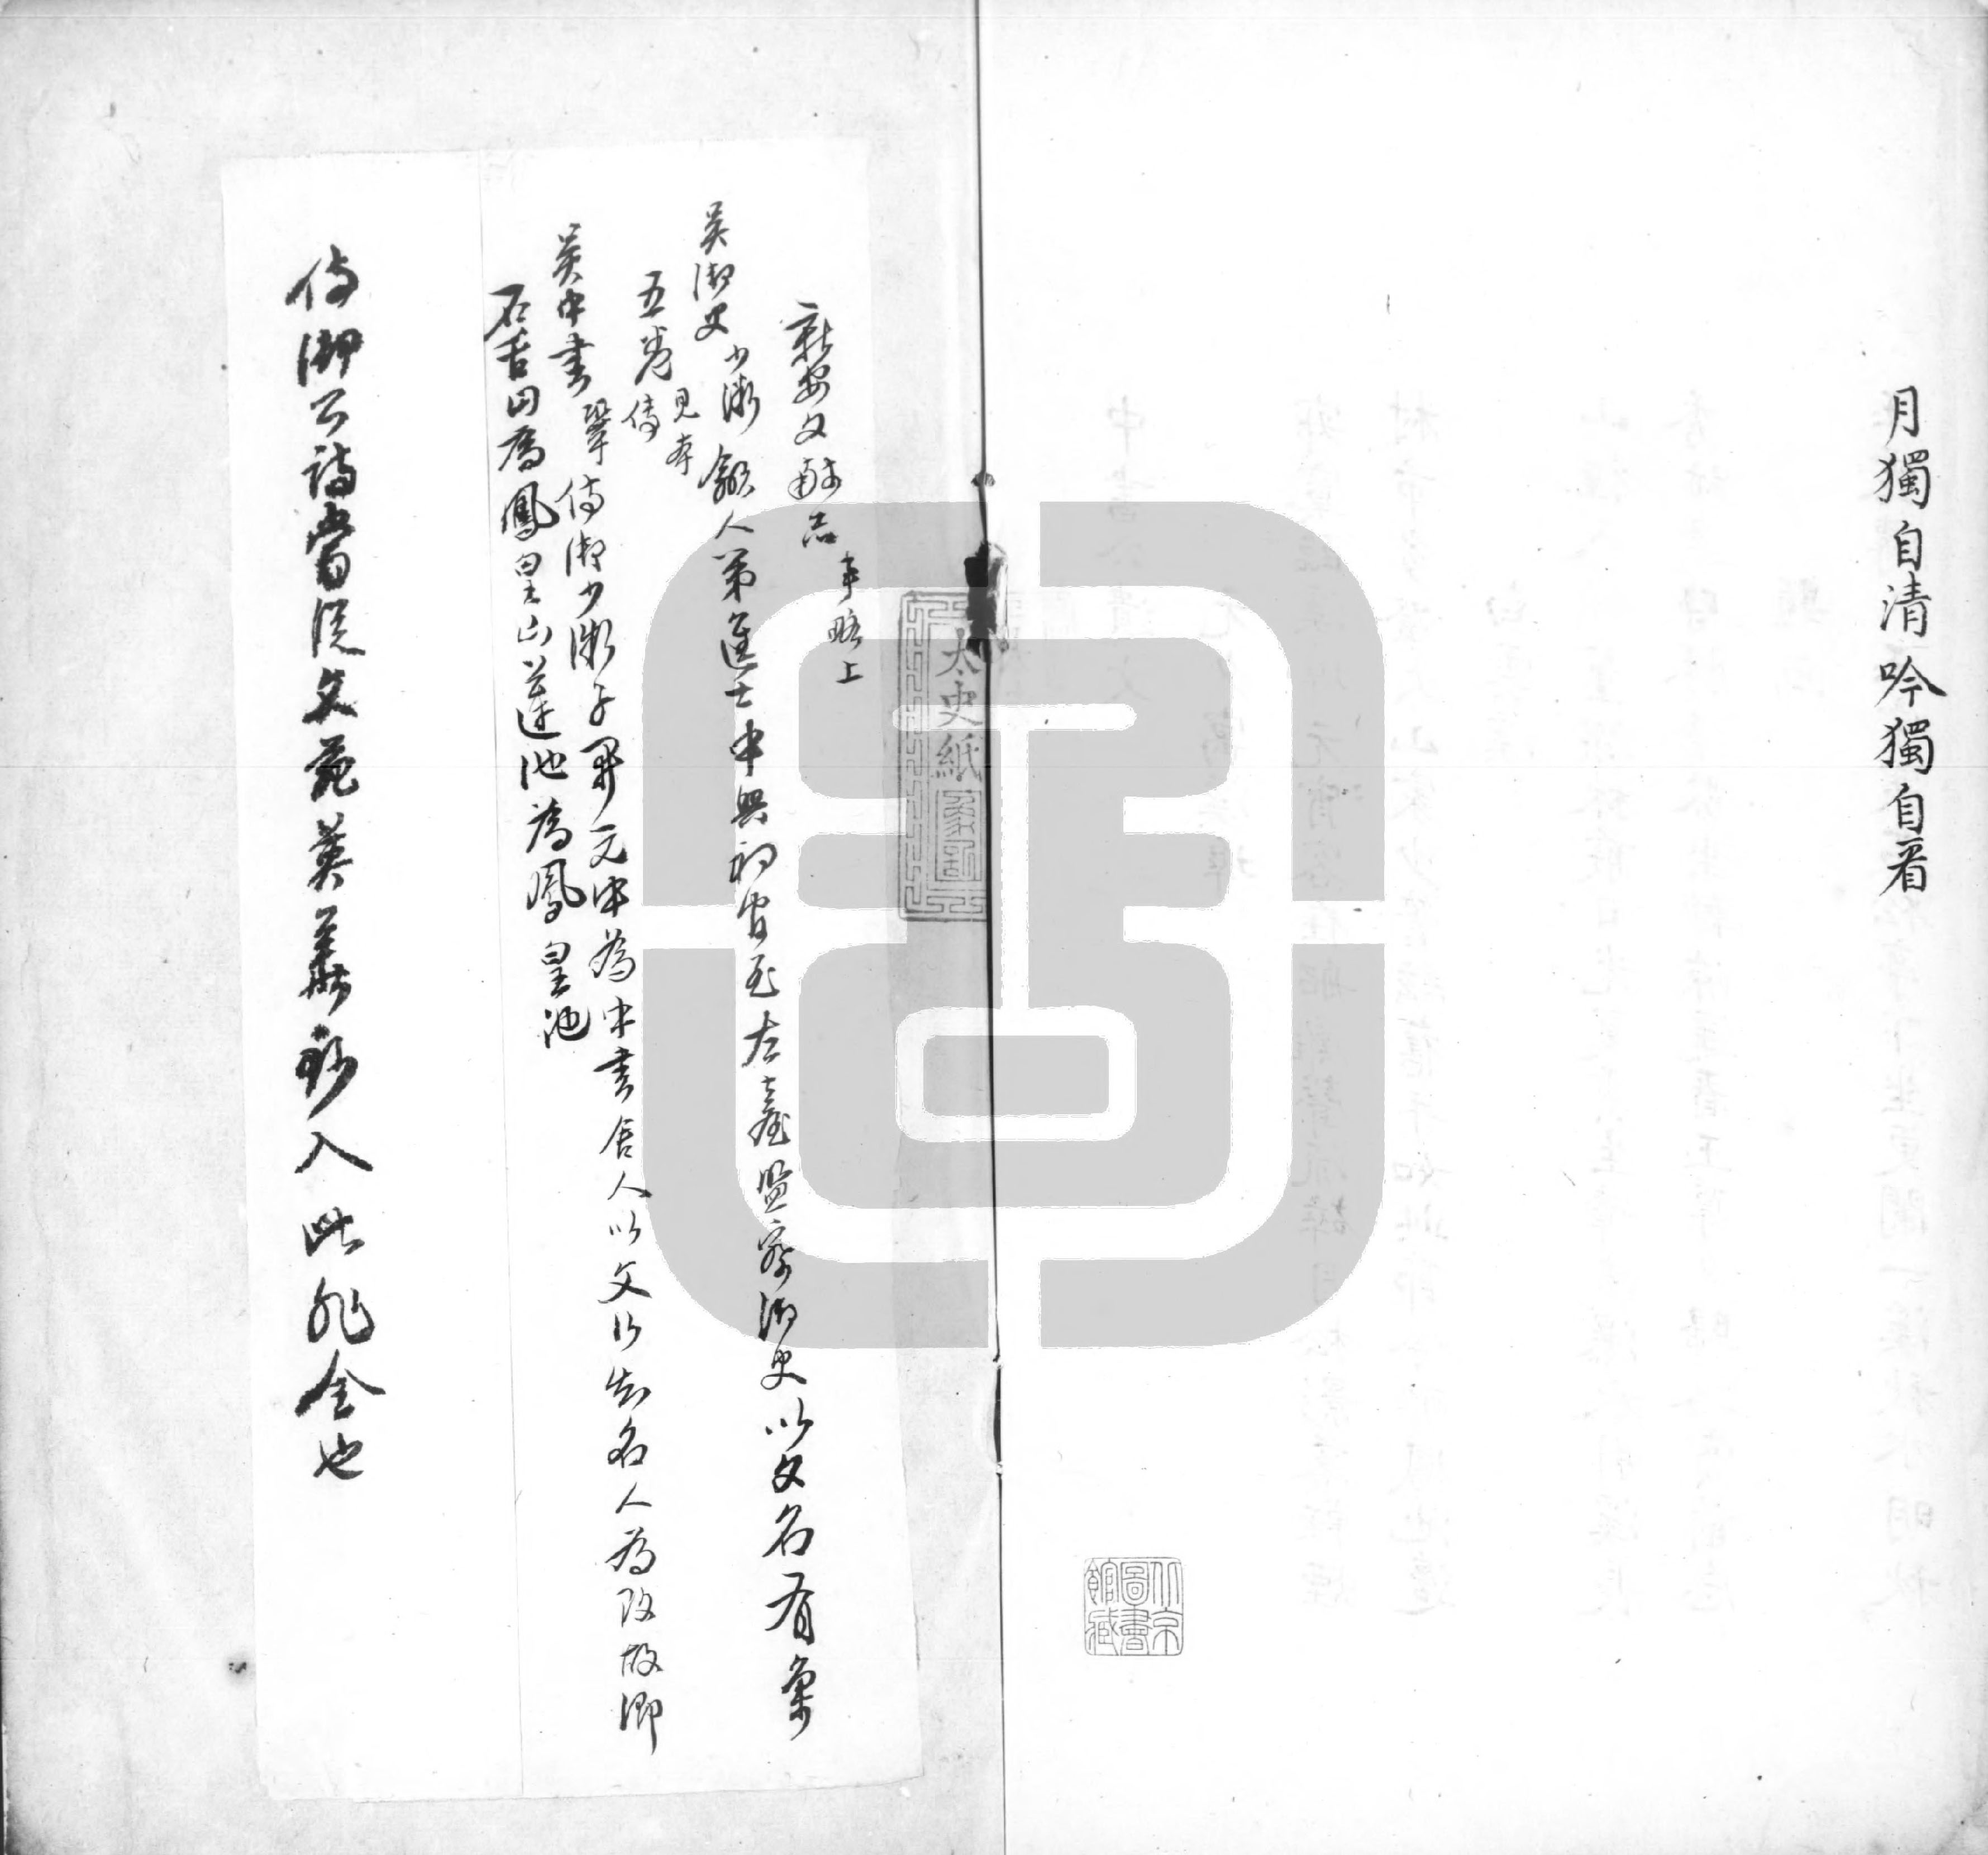 月獨自清吟獨自看
北京圖書館藏
太史紙
新安文獻志事略上
吳御史少微歙人第進士中興初官至左臺監察御史以文名有集
五卷見本傳
吳中書鞏侍御少微子開元中為中書舍人以文行知名人為改故鄉
石舌田為鳳皇山蓮池為鳳皇池
侍御公詩當從文苑英華鈔入此非全也